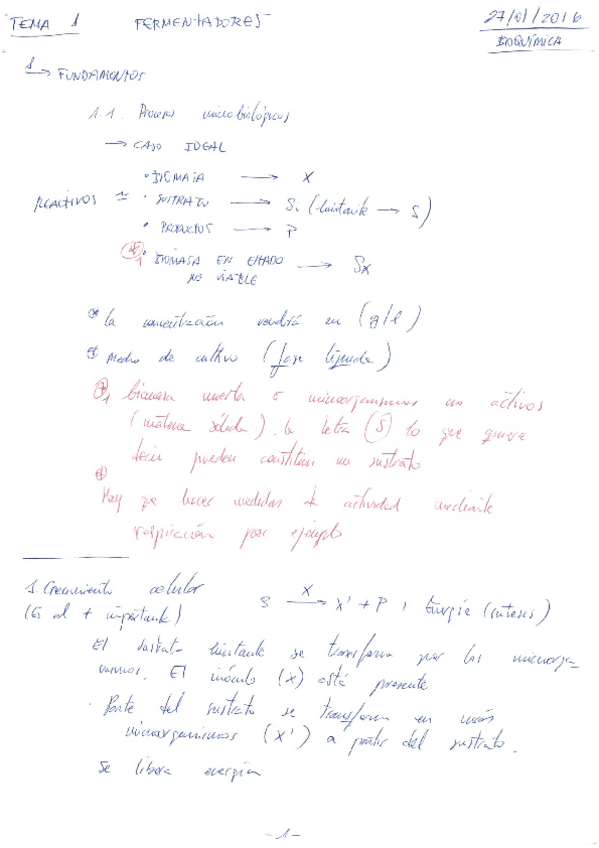 TEMA 1 FERMENTADORES 27/01/2016
BIOQUÍMICA
1 → FUNDAMENTOS
1.1. Procesos microbiológicos
→ CASO IDEAL
• BIOMASA → X
REACTIVOS • SUSTRATO → Si (limitante → S)
• PRODUCTOS → P
• BIOMASA EN ESTADO → Sx
NO VIABLE
* la concentración vendrá en (g/l)
* Medio de cultivo (fase líquida)
*1 biomasa muerta o microorganismos no activos
(materia sólida). la letra (S) lo que quiere
decir pueden constituir un sustrato
Hay que hacer medidas de actividad mediante
respiración por ejemplo
1. Crecimiento celular
(Es el + importante) S X→ X' + P + Energía (síntesis)
El sustrato limitante se transforma por los microorga
nismos. El inóculo (X) está presente
• Parte del sustrato se transforma en más
microorganismos (X') a partir del sustrato.
Se libera energía
-1-